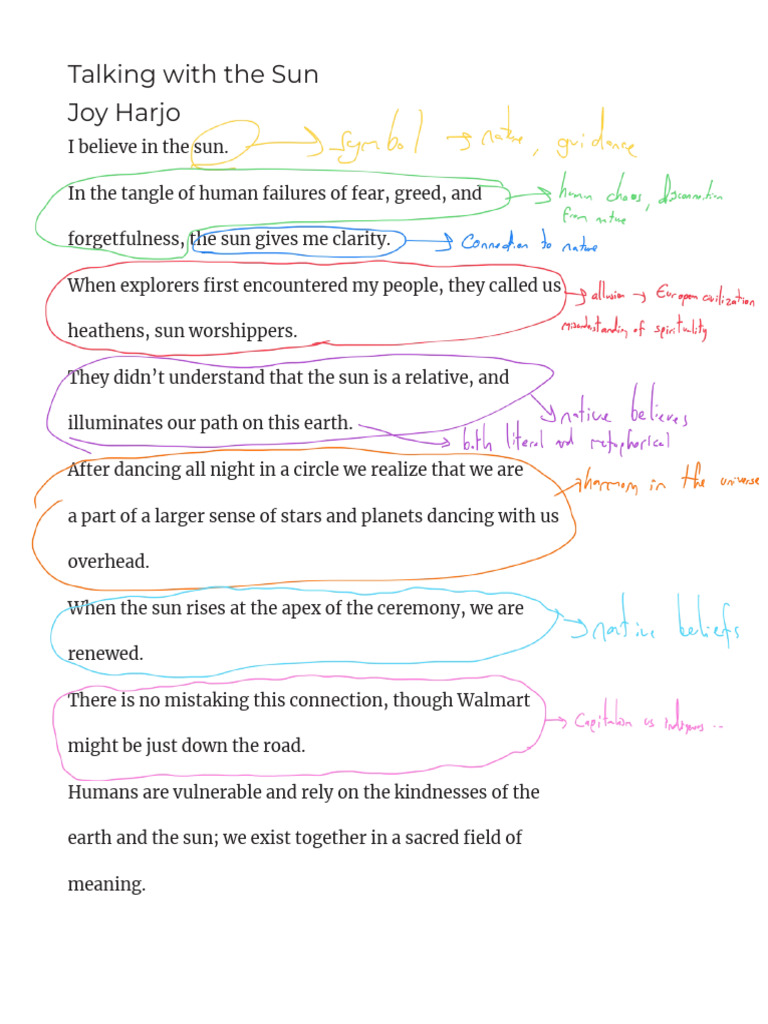 Talking with the Sun
Joy Harjo
I believe in the sun. → symbol → nature, guidance
In the tangle of human failures of fear, greed, and → human chaos, disconnection
from nature
forgetfulness, the sun gives me clarity. → Connection to nature
When explorers first encountered my people, they called us → allusion → European civilization
heathens, sun worshippers. misunderstanding of spirituality
They didn’t understand that the sun is a relative, and
→ native believes
illuminates our path on this earth. → both literal and metaphorical
After dancing all night in a circle we realize that we are → harmony in the universe
a part of a larger sense of stars and planets dancing with us
overhead.
When the sun rises at the apex of the ceremony, we are → native beliefs
renewed.
There is no mistaking this connection, though Walmart → Capitalism vs indigenous ..
might be just down the road.
Humans are vulnerable and rely on the kindnesses of the
earth and the sun; we exist together in a sacred field of
meaning.